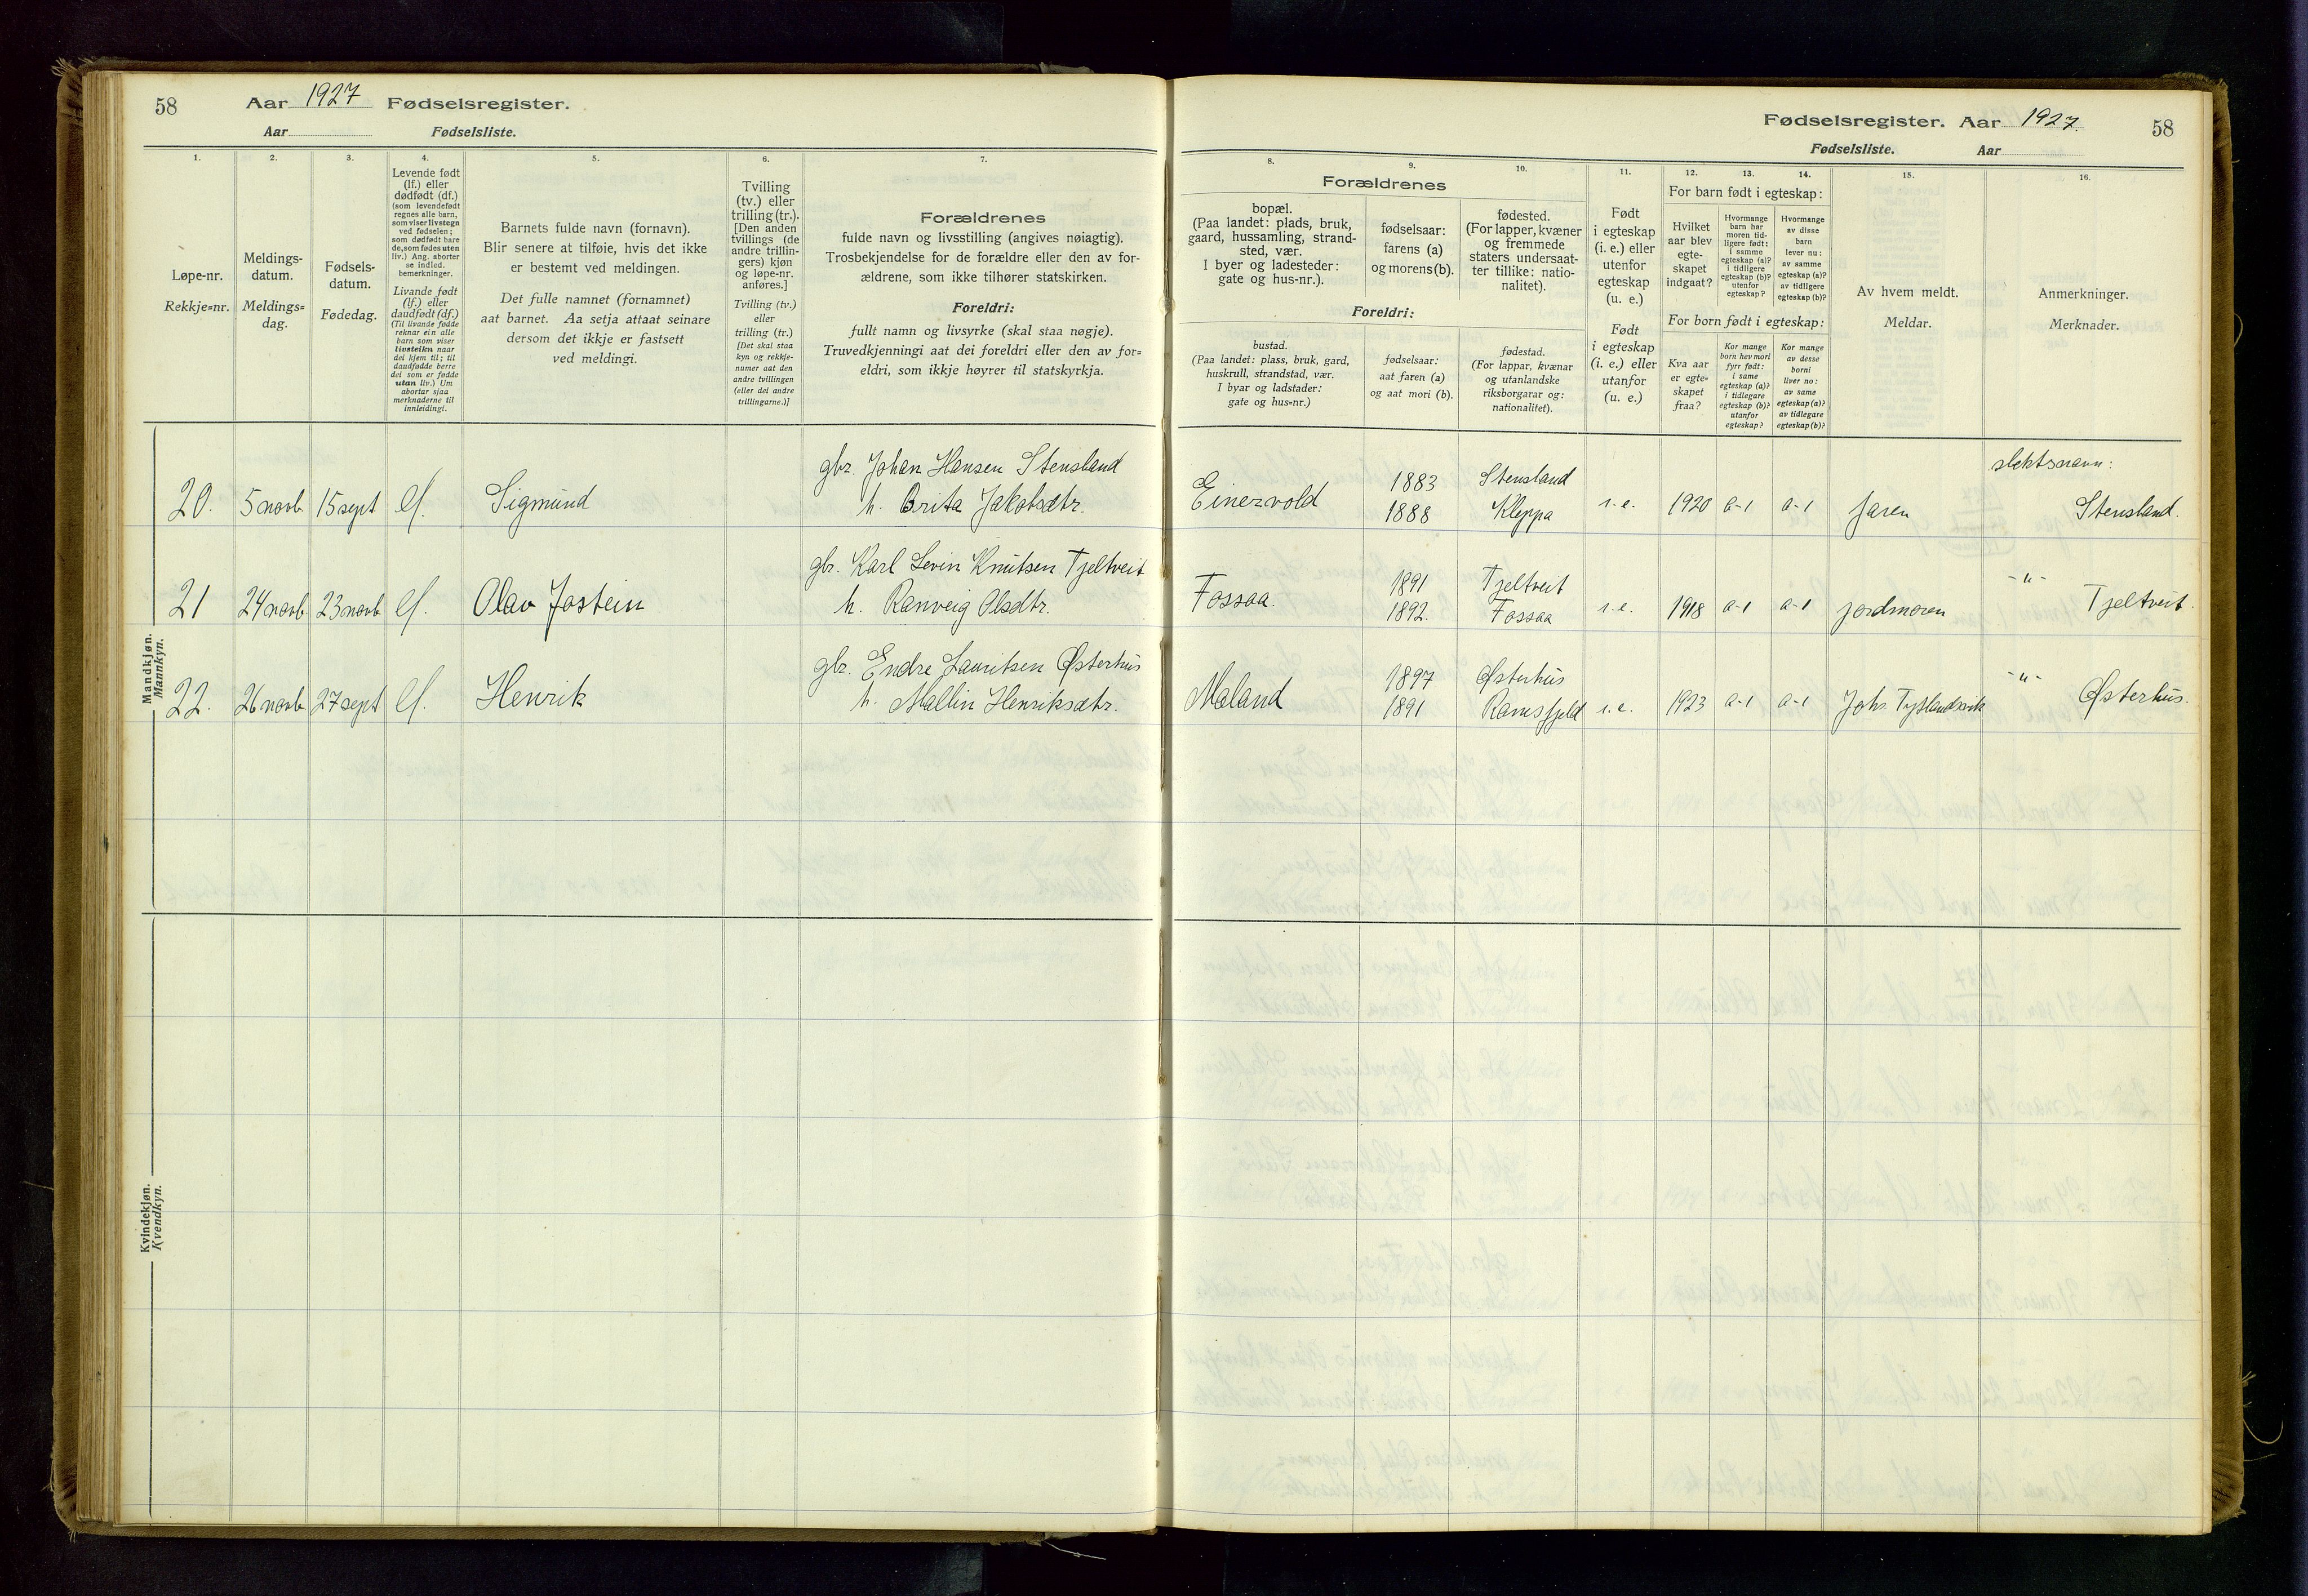 58 Aar 1927 Fødselsregister.
Aar Fødselsliste.
1. 2. 3. 4. 5. 6. 7.
Løpe-nr.
Rekkje=nr.
Meldings-
datum.
Meldings=
dag.
Fødsels-
datum.
Fødedag.
Levende født
(lf.) eller
dødfødt (df.)
(som levendefødt
regnes alle barn,
som viser livstegn
ved fødselen;
som dødfødt bare
de, som fødes uten
liv.) Ang. aborter
se indled.
bemerkninger.
Livande født
(lf.) eller
daudfødt (df.)
(Til livande fødde
reknar ein alle
barn som viser
livsteikn naar
dei kjem til; til
daudfødde berre
dei som er fødde
utan liv.) Um
abortar sjaa
merknaderne til
innleidingi.
Barnets fulde navn (fornavn).
Blir senere at tilføie, hvis det ikke
er bestemt ved meldingen.
Det fulle namnet (fornamnet)
aat barnet. Aa setja attaat seinare
dersom det ikkje er fastsett
ved meldingi.
Tvilling
(tv.) eller
trilling (tr.).
[Den anden
tvillings (de
andre trillin-
gers) kjøn
og løpe-nr.
anføres.]
Tvilling (tv.)
eller
trilling (tr.)
[Det skal staa
kyn og rekkje-
numer aat den
andre tvillingen
(eller dei andre
trillingarne.)]
Forældrenes
fulde navn og livsstilling (angives nøiagtig).
Trosbekjendelse for de forældre eller den av for-
ældrene, som ikke tilhører statskirken.
Foreldri:
fullt namn og livsyrke (skal staa nøgje).
Truvedkjenningi aat dei foreldri eller den av for=
eldri, som ikkje høyrer til statskyrkja.
Mandkjøn.
Mannkyn.
20. 5 novb 15 sept lf. Sigmund gbr. Johan Hansen Stensland
h. Brita Jakobsdtr.
21 24 novb 23 novb lf. Olav Jostein gbr. Karl Sevin Knutsen Tjeltveit
h. Ranveig Olsdtr.
22. 26 novb 27 sept lf. Henrik gbr. Endre Lauritsen Østerhus
h. Mallin Henriksdtr.
Kvindekjøn.
Kvendkyn.
Fødselsregister. Aar 1927. 58
Fødselsliste. Aar
8. 9. 10. 11. 12. 13. 14. 15. 16.
Forældrenes
bopæl.
(Paa landet: plads, bruk,
gaard, hussamling, strand-
sted, vær.
I byer og ladesteder:
gate og hus-nr.).
fødselsaar:
farens (a)
og morens (b).
fødested.
(For lapper, kvæner
og fremmede
staters undersaat-
ter tillike: natio-
nalitet).
Foreldri:
bustad.
(Paa landet: plass, bruk, gard,
huskrull, strandstad, vær.
I byar og ladstader:
gate og hus=nr.)
fødselsaar:
aat faren (a)
og aat mori (b).
fødestad.
(For lappar, kvænar
og utanlandske
riksborgarar og:
nationalitet).
Født
i egteskap
(i. e.) eller
utenfor
egteskap
(u. e.)
Født
i egteskap
(i. e.) eller
utanfor
(u. e.)
For barn født i egteskap:
Hvilket
aar blev
egte-
skapet
indgaat?
Hvormange
barn har
moren tid-
ligere født:
i samme
egteskap (a)?
i tidligere
egteskap (b)?
utenfor
egteskap?
Hvormange
av disse
barn
lever nu:
av samme
egteskap (a)?
av tidligere
egteskap (b)?
For born født i egteskap:
Kva aar
er egte=
skapet
fraa?
Kor mange
born hev mori
fyrr født:
i same
egteskap (a)?
i tidlegare
egteskap (b)?
utanfor
egteskap?
Kor mange
av desse
borni
liver no:
av same
egteskap (a)?
av tidlegare
egteskap (b)?
Av hvem meldt.
Meldar.
Anmerkninger.
Merknader.
slektsnavn:
Einervold 1883 Stensland
1888 Kleppa i. e. 1920 a-1 a-1 faren Stensland.
Fossaa. 1891 Tjeltveit
1892. Fossaa i. e. 1918 a-1 a-1 jordmoren -"- Tjeltveit.
Maland 1897 Østerhus
1891 Ramsfjeld i. e. 1923 a-1 a-1 Johs. Tyslandsvik -"- Østerhus.